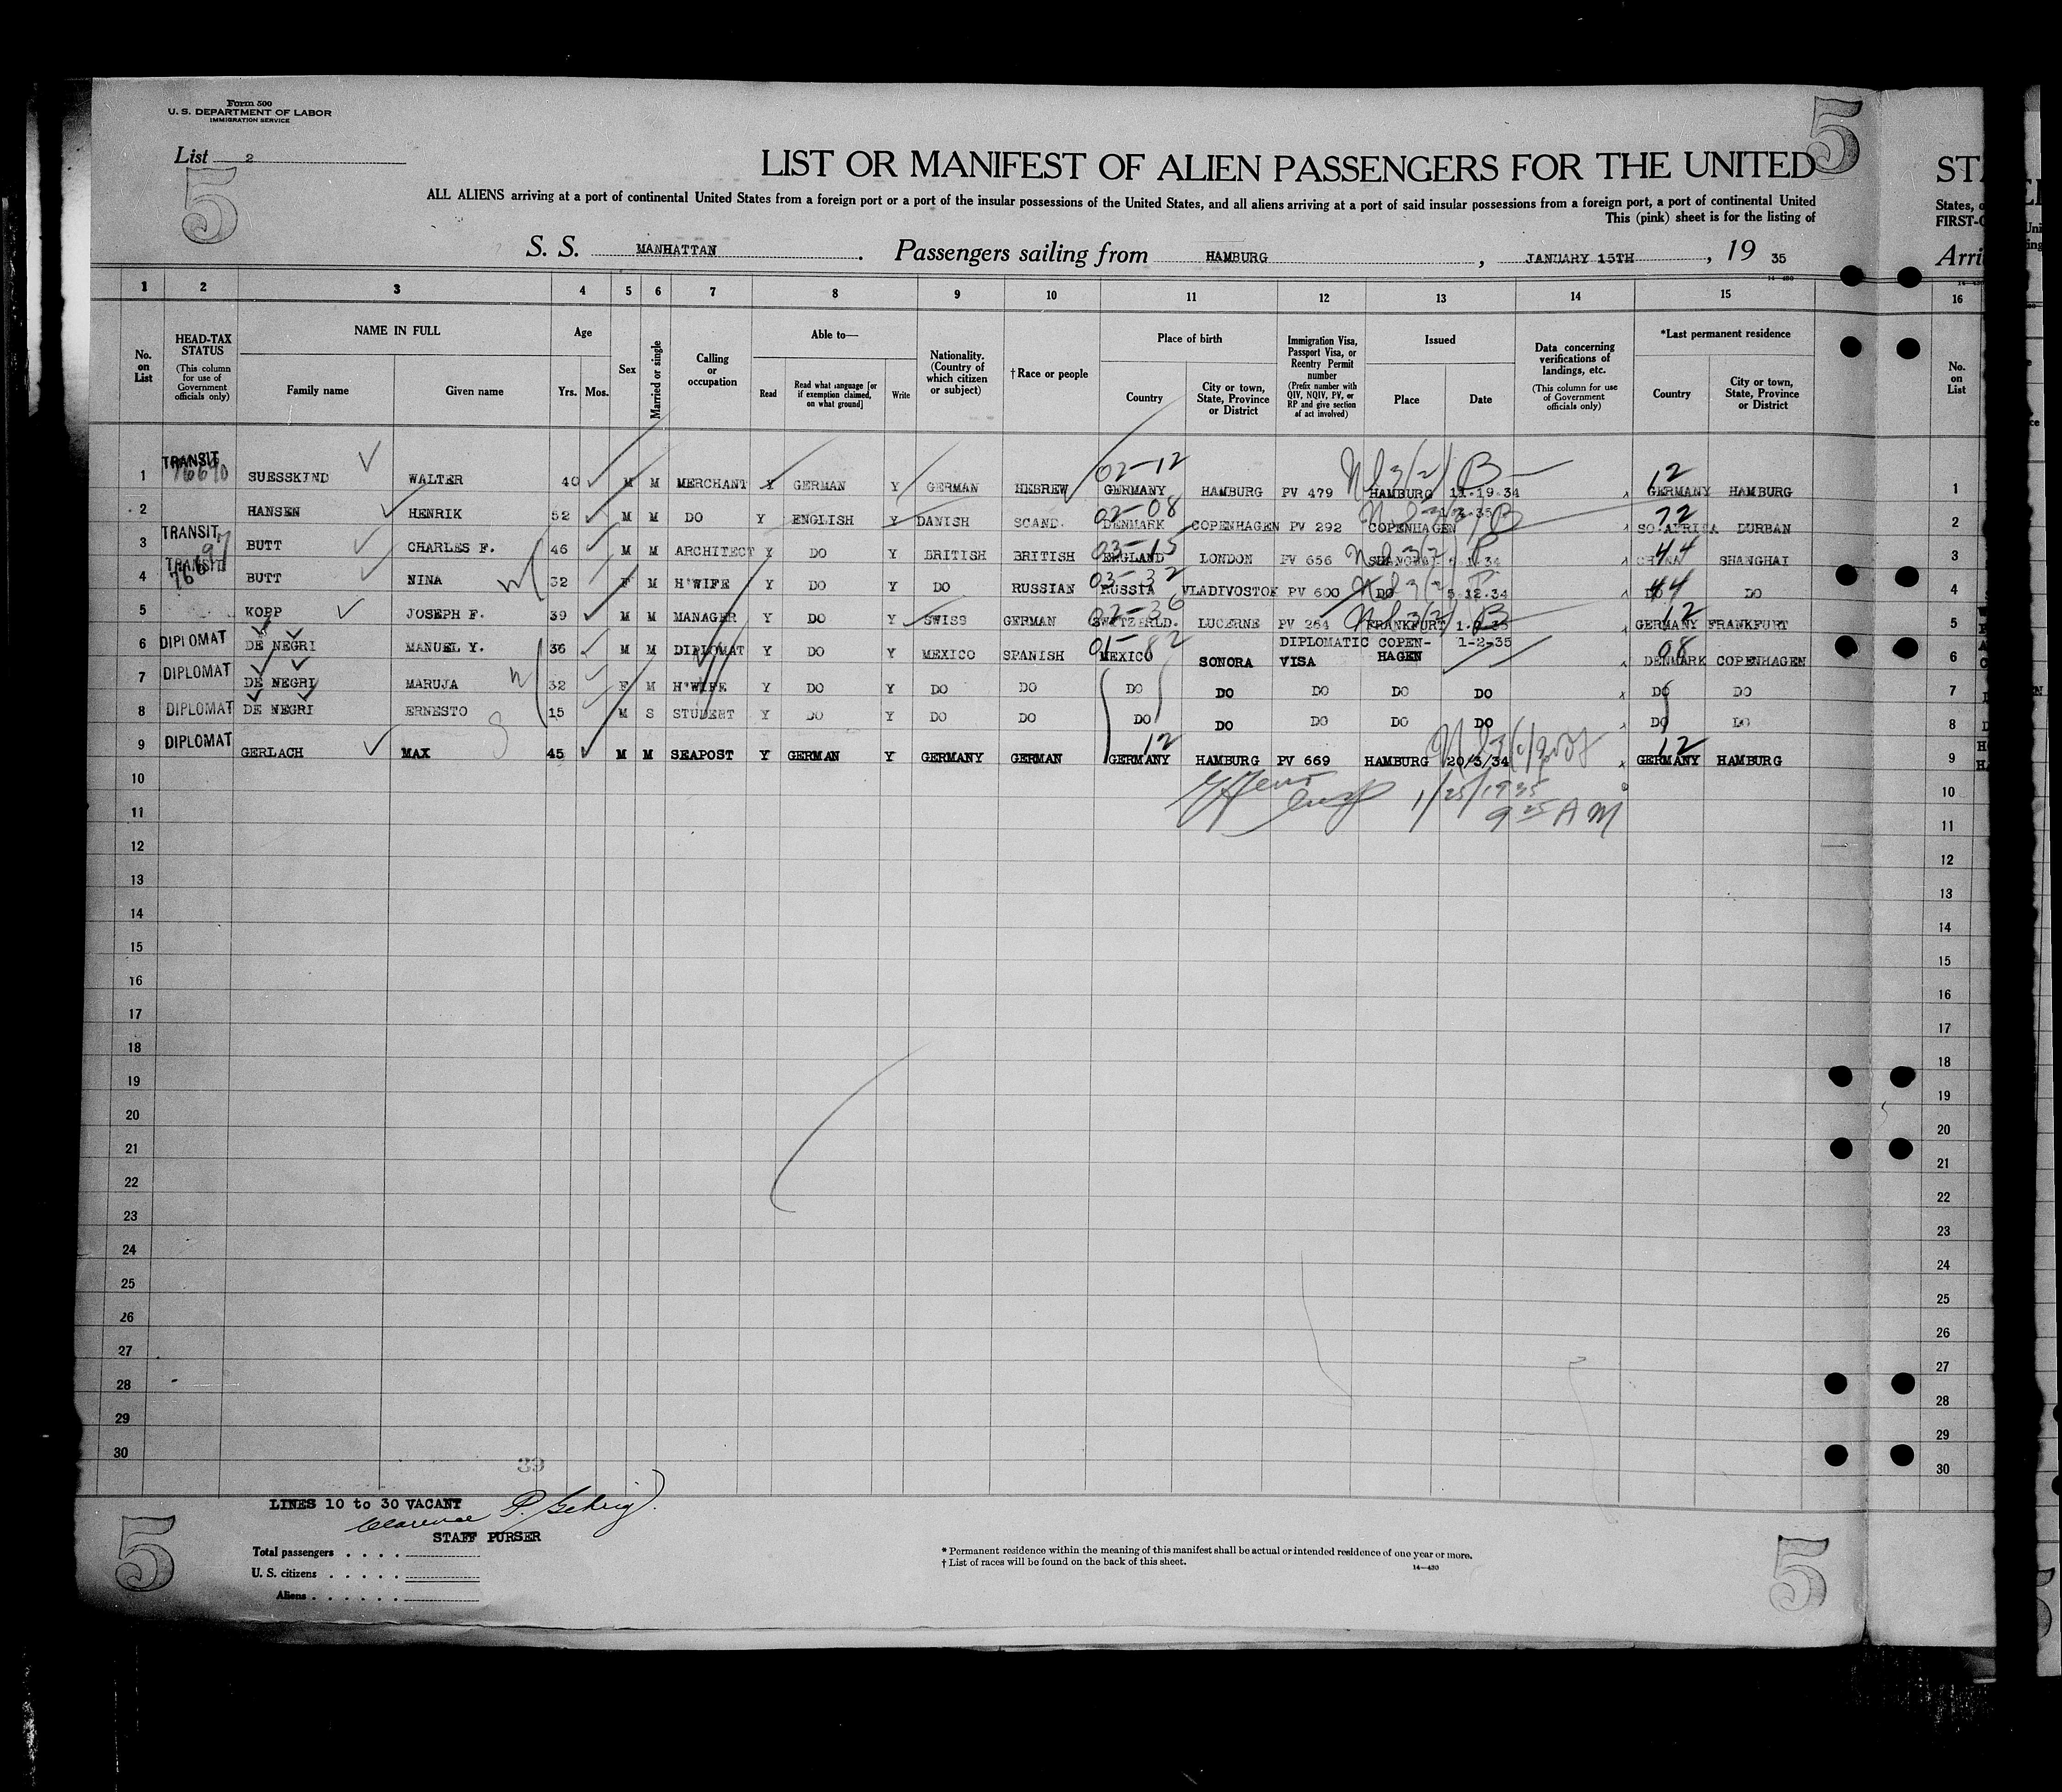 Form 500
U. S. DEPARTMENT OF LABOR
IMMIGRATION SERVICE
List 2
5
5
LIST OR MANIFEST OF ALIEN PASSENGERS FOR THE UNITED
ALL ALIENS arriving at a port of continental United States from a foreign port or a port of the insular possessions of the United States, and all aliens arriving at a port of said insular possessions from a foreign port, a port of continental United
This (pink) sheet is for the listing of
S. S. MANHATTAN. Passengers sailing from HAMBURG, JANUARY 15TH, 19 35
STA
States, o
FIRST-C
Arri
1 2 3 4 5 6 7 8 9 10 11 12 13 14 15 16
No. on List
HEAD-TAX STATUS (This column for use of Government officials only)
NAME IN FULL Family name Given name
Age Yrs. Mos.
Sex
Married or single
Calling or occupation
Able to— Read Read what language [or if exemption claimed, on what ground] Write
Nationality. (Country of which citizen or subject)
†Race or people
Place of birth Country City or town, State, Province or District
Immigration Visa, Passport Visa, or Reentry Permit number (Prefix number with QIV, NQIV, PV, or RP and give section of act involved)
Issued Place Date
Data concerning verifications of landings, etc. (This column for use of Government officials only)
*Last permanent residence Country City or town, State, Province or District
No. on List
1 TRANSIT SUESSKIND WALTER 40 M M MERCHANT Y GERMAN Y GERMAN HEBREW 02-12 GERMANY HAMBURG PV 479 HAMBURG 11.19.34 12 GERMANY HAMBURG 1
2 HANSEN HENRIK 52 M M DO Y ENGLISH Y DANISH SCAND. 02-08 DENMARK COPENHAGEN PV 292 COPENHAGEN 72 SO.AFRICA DURBAN 2
3 TRANSIT BUTT CHARLES F. 46 M M ARCHITECT Y DO Y BRITISH BRITISH 03-15 ENGLAND LONDON PV 656 SHANGHAI 44 CHINA SHANGHAI 3
4 TRANSIT BUTT NINA 32 F M H'WIFE Y DO Y DO RUSSIAN 03-32 RUSSIA VLADIVOSTOK PV 600 DO 5.12.34 44 DO DO 4
5 KOPP JOSEPH F. 39 M M MANAGER Y DO Y SWISS GERMAN 02-36 SWITZERLD. LUCERNE PV 264 FRANKFURT 12 GERMANY FRANKFURT 5
6 DIPLOMAT DE NEGRI MANUEL Y. 36 M M DIPLOMAT Y DO Y MEXICO SPANISH 01-82 MEXICO SONORA DIPLOMATIC VISA COPEN-HAGEN 1-2-35 08 DENMARK COPENHAGEN 6
7 DIPLOMAT DE NEGRI MARUJA 32 F M H'WIFE Y DO Y DO DO DO DO DO DO DO DO DO 7
8 DIPLOMAT DE NEGRI ERNESTO 15 M S STUDENT Y DO Y DO DO DO DO DO DO DO DO DO 8
9 DIPLOMAT GERLACH MAX 45 M M SEAPOST Y GERMAN Y GERMANY GERMAN 12 GERMANY HAMBURG PV 669 HAMBURG 20/3/34 12 GERMANY HAMBURG 9
10 1/25/1935 10
11 9 25 AM 11
12 12
13 13
14 14
15 15
16 16
17 17
18 18
19 19
20 20
21 21
22 22
23 23
24 24
25 25
26 26
27 27
28 28
29 29
30 30
39
LINES 10 to 30 VACANT
Clarence P. Gehrig
STAFF PURSER
Total passengers . . . .
U. S. citizens . . . . .
Aliens . . . . . .
* Permanent residence within the meaning of this manifest shall be actual or intended residence of one year or more.
† List of races will be found on the back of this sheet.
14—430
5
5